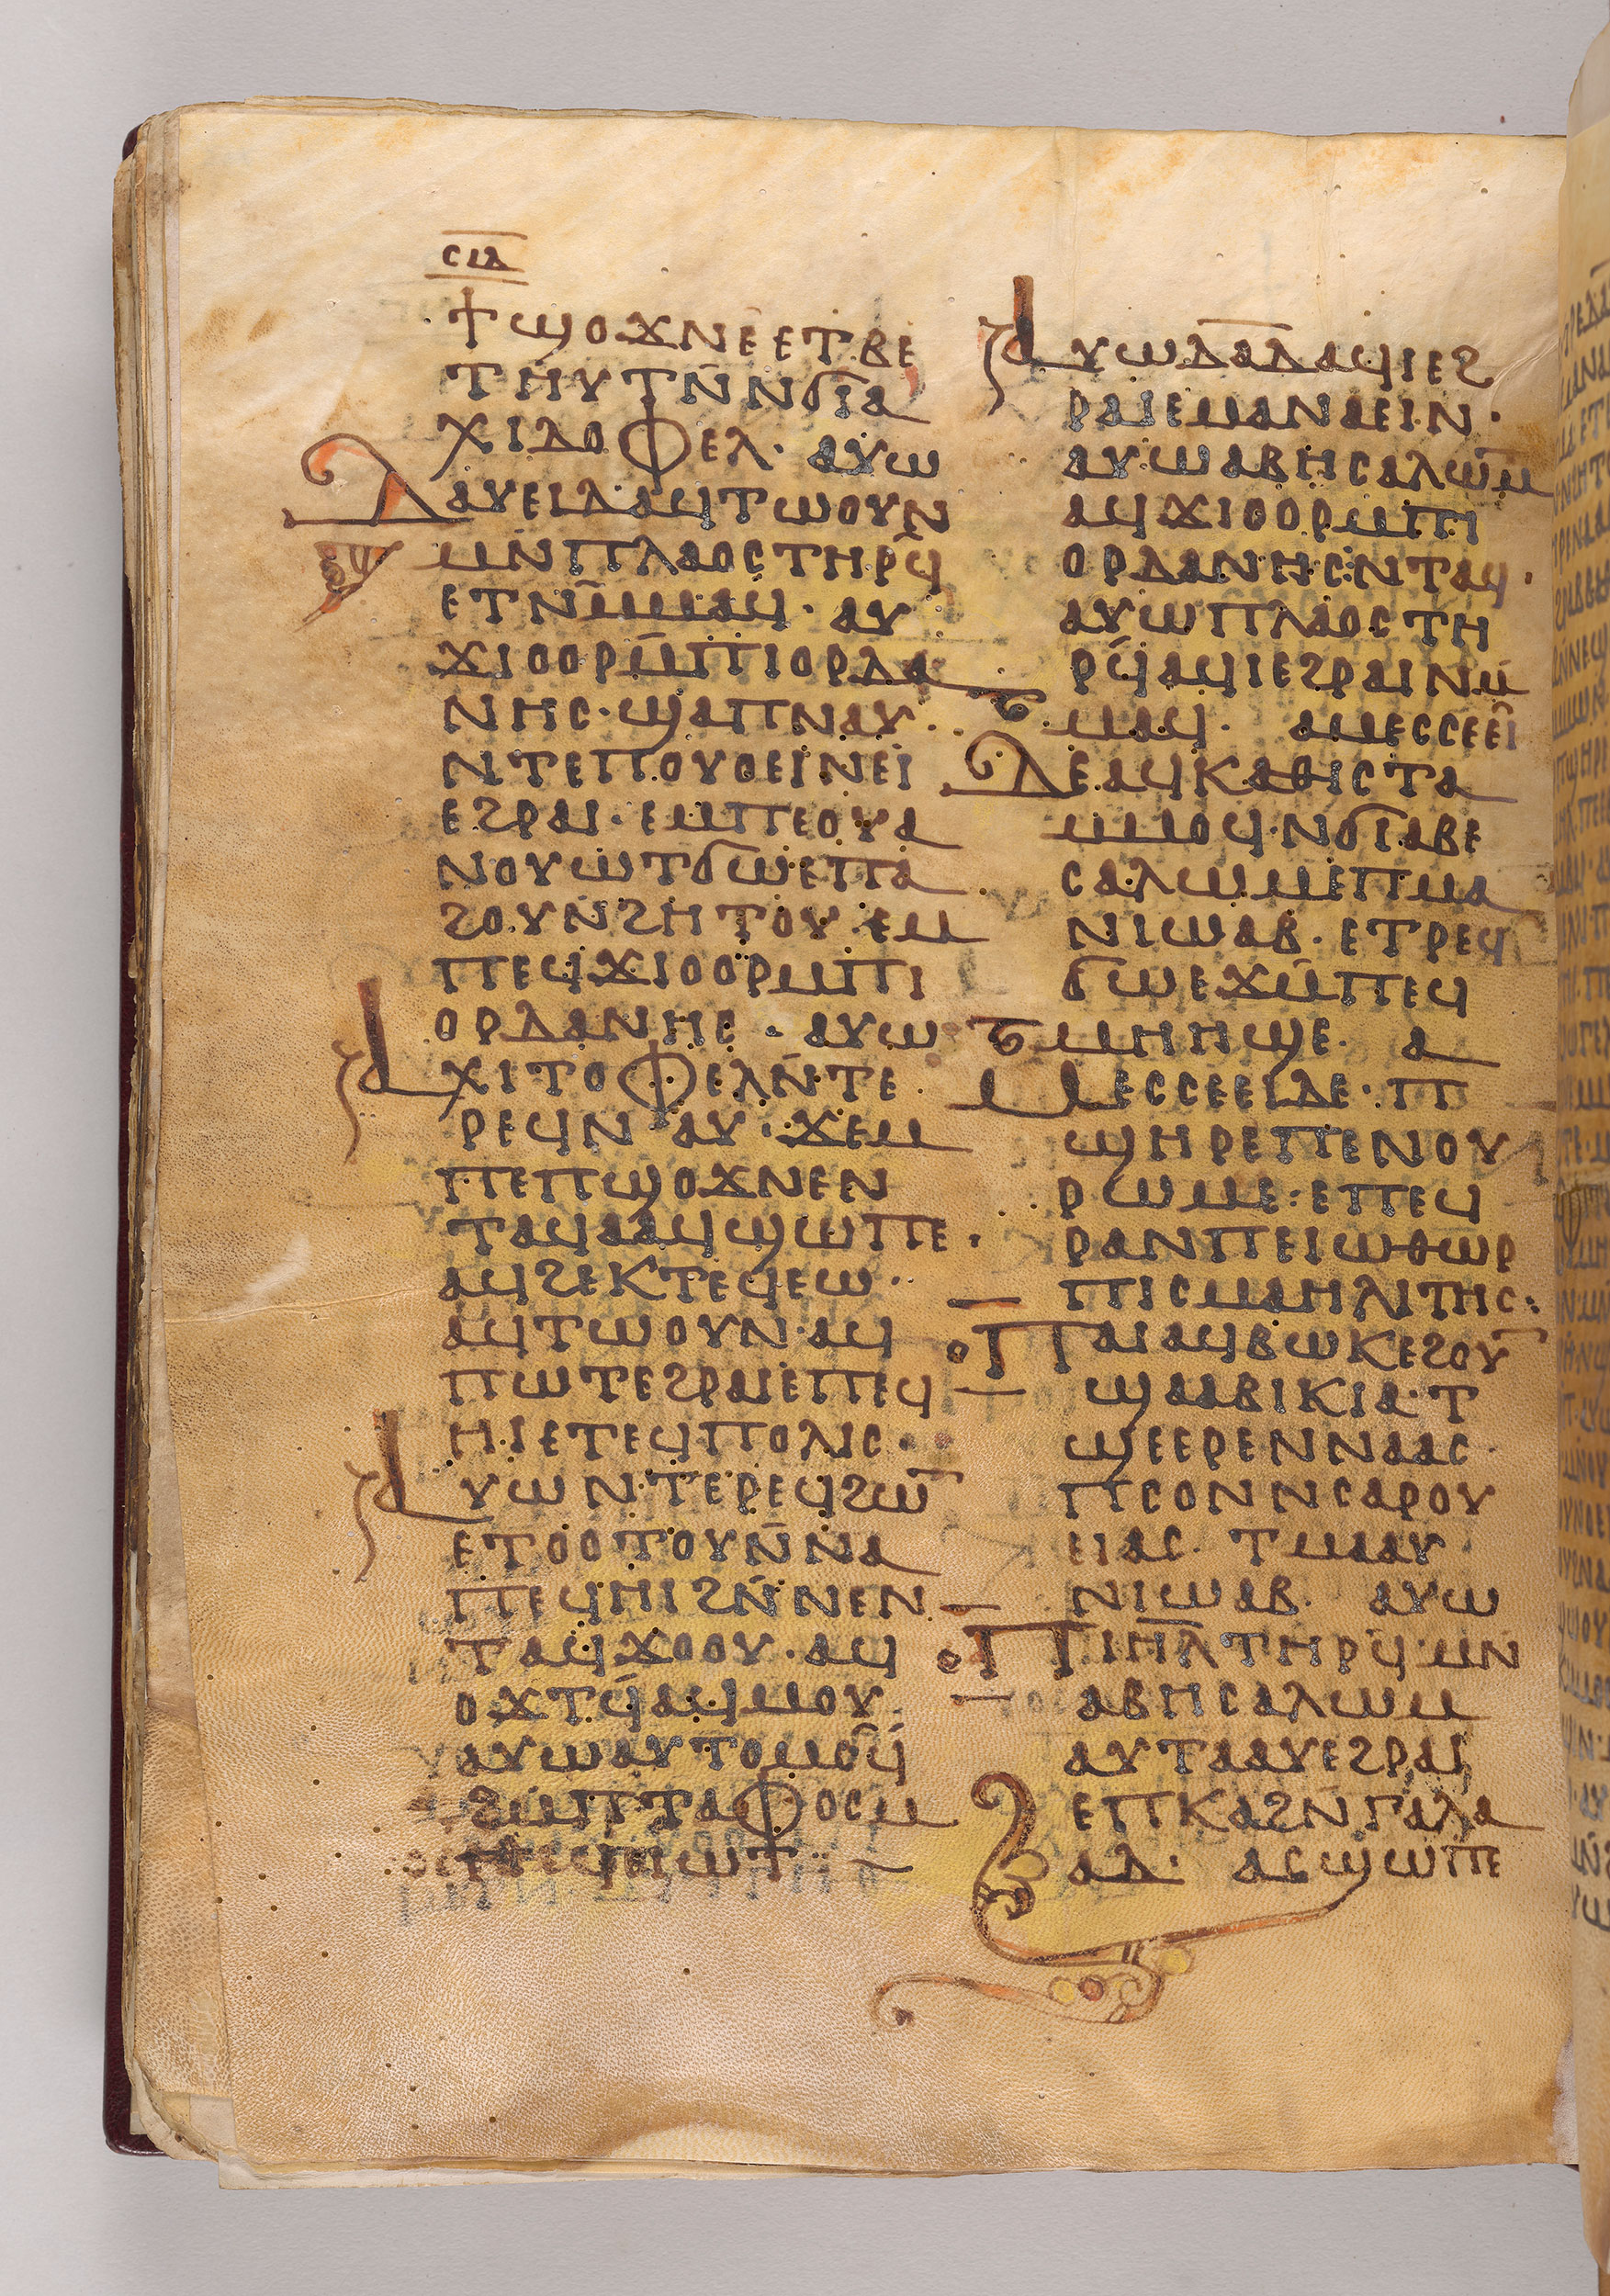 ⲥⲓⲇ
ϯϣⲟϫⲛⲉⲉⲧⲃⲉ
ⲧⲏⲩⲧⲛ̄ⲛϭⲓⲁ
ⲭⲓⲇⲟⲫⲉⲗ· ⲁⲩⲱ
ⲇⲁⲩⲉⲓⲇⲁϥⲧⲱⲟⲩⲛ
ⲙⲛⲡⲗⲁⲟⲥⲧⲏⲣϥ̄
ⲉⲧⲛⲙ̄ⲙⲁϥ· ⲁⲩ
ϫⲓⲟⲟⲣⲙ̄ⲡⲓⲟⲣⲇⲁ
ⲛⲏⲥ·ϣⲁⲡⲛⲁⲩ·
ⲛⲧⲉⲡⲟⲩⲟⲉⲓⲛⲉⲓ
ⲉϩⲣⲁⲓ·ⲉⲙⲡⲉⲟⲩⲁ
ⲛⲟⲩⲱⲧϭⲱⲉⲡⲁ
ϩⲟⲩⲛ̄ϩⲏⲧⲟⲩ·ⲉⲙ
ⲡⲉϥϫⲓⲟⲟⲣⲙⲡⲓ
ⲟⲣⲇⲁⲛⲏⲥ· ⲁⲩⲱ
ⲁⲭⲓⲧⲟⲫⲉⲗⲛ̄ⲧⲉ
ⲣⲉϥⲛⲁⲩ·ϫⲉⲙ
ⲡⲉⲡϣⲟϫⲛⲉⲛ
ⲧⲁϥⲁⲁϥϣⲱⲡⲉ·
ⲁϥϩⲉⲕⲧⲉϥⲉⲱ·
ⲁϥⲧⲱⲟⲩⲛ·ⲁϥ
ⲡⲱⲧⲉϩⲣⲁⲓⲉⲡⲉϥ
ⲏⲓⲉⲧⲉϥⲡⲟⲗⲓⲥ·
ⲁⲩⲱⲛ·ⲧⲉⲣⲉϥϩⲱⲛ̄
ⲉⲧⲟⲟⲧⲟⲩⲛ̄ⲛⲁ
ⲡⲉϥⲏⲓϩⲛ̄ⲛⲉⲛ
ⲧⲁϥϫⲟⲟⲩ·ⲁϥ
ⲟϫⲧϥ̄ⲁϥⲙⲟⲩ
ⲁⲩⲱⲁⲩⲧⲟⲙⲟϭϥ̄
ϩⲙ̄ⲡⲧⲁⲫⲟⲥⲙ
ⲡⲉϥⲉⲓⲱⲧ
ⲁⲩⲱⲇⲁ̄ⲇⲁϥⲓⲉϩ
ⲣⲁⲓⲉⲙⲁⲛⲁⲉⲓⲛ·
ⲁⲩⲱⲁⲃⲏⲥⲁⲗⲱⲙ
ⲁϥϫⲓⲟⲟⲣⲙⲡⲓ
ⲟⲣⲇⲁⲛⲏⲥⲛⲧⲁϥ·
ⲁⲩⲱⲡⲗⲁⲟⲥⲧⲏ
ⲣϥ̄ⲁϥⲓⲉϩⲣⲁⲓⲛⲙ̄
ⲙⲁϥ· ⲁⲙⲉⲥⲥⲉⲉⲓ
ⲇⲉⲁϥⲕⲁⲑⲓⲥⲧⲁ
ⲙⲙⲟϥ·ⲛϭⲓⲁⲃⲉ
ⲥⲁⲗⲱⲙⲉⲡⲙⲁ
ⲛⲓⲱⲁⲃ·ⲉⲧⲣⲉϥ
ϭⲱⲉϫⲙ̄ⲡⲉϥ
ⲙⲏⲏϣⲉ· ⲁ
ⲙⲉⲥⲥⲉⲉⲓⲇⲉ·ⲡ
ϣⲏⲣⲉⲡⲉⲛⲟⲩ
ⲣⲱⲙⲉ:ⲉⲡⲉϥ
ⲣⲁⲛⲡⲉⲓⲱⲑⲱⲣ
ⲡⲓⲥⲙⲁⲏⲗⲓⲧⲏⲥ:
ⲡⲁⲓⲁϥⲃⲱⲕⲉϩⲟⲩⲛ̄
ϣⲁⲁⲃⲓⲕⲓⲁ·ⲧ
ϣⲉⲉⲣⲉⲛⲛⲁⲁⲥ·
ⲡⲥⲟⲛⲛⲥⲁⲣⲟⲩ
ⲉⲓⲁⲥ· ⲧⲙⲁⲁⲩ
ⲛⲓⲱⲁⲃ· ⲁⲩⲱ
ⲡⲓⲏ̄ⲗⲧⲏⲣϥ·ⲙⲛ
ⲁⲃⲏⲥⲁⲗⲱⲙ
ⲁⲩⲧⲁⲁⲩⲉϩⲣⲁⲓ
ⲉⲡⲕⲁϩⲛ̄ⲅⲁⲗⲁ
ⲁⲇ· ⲁⲥϣⲱⲡⲉ